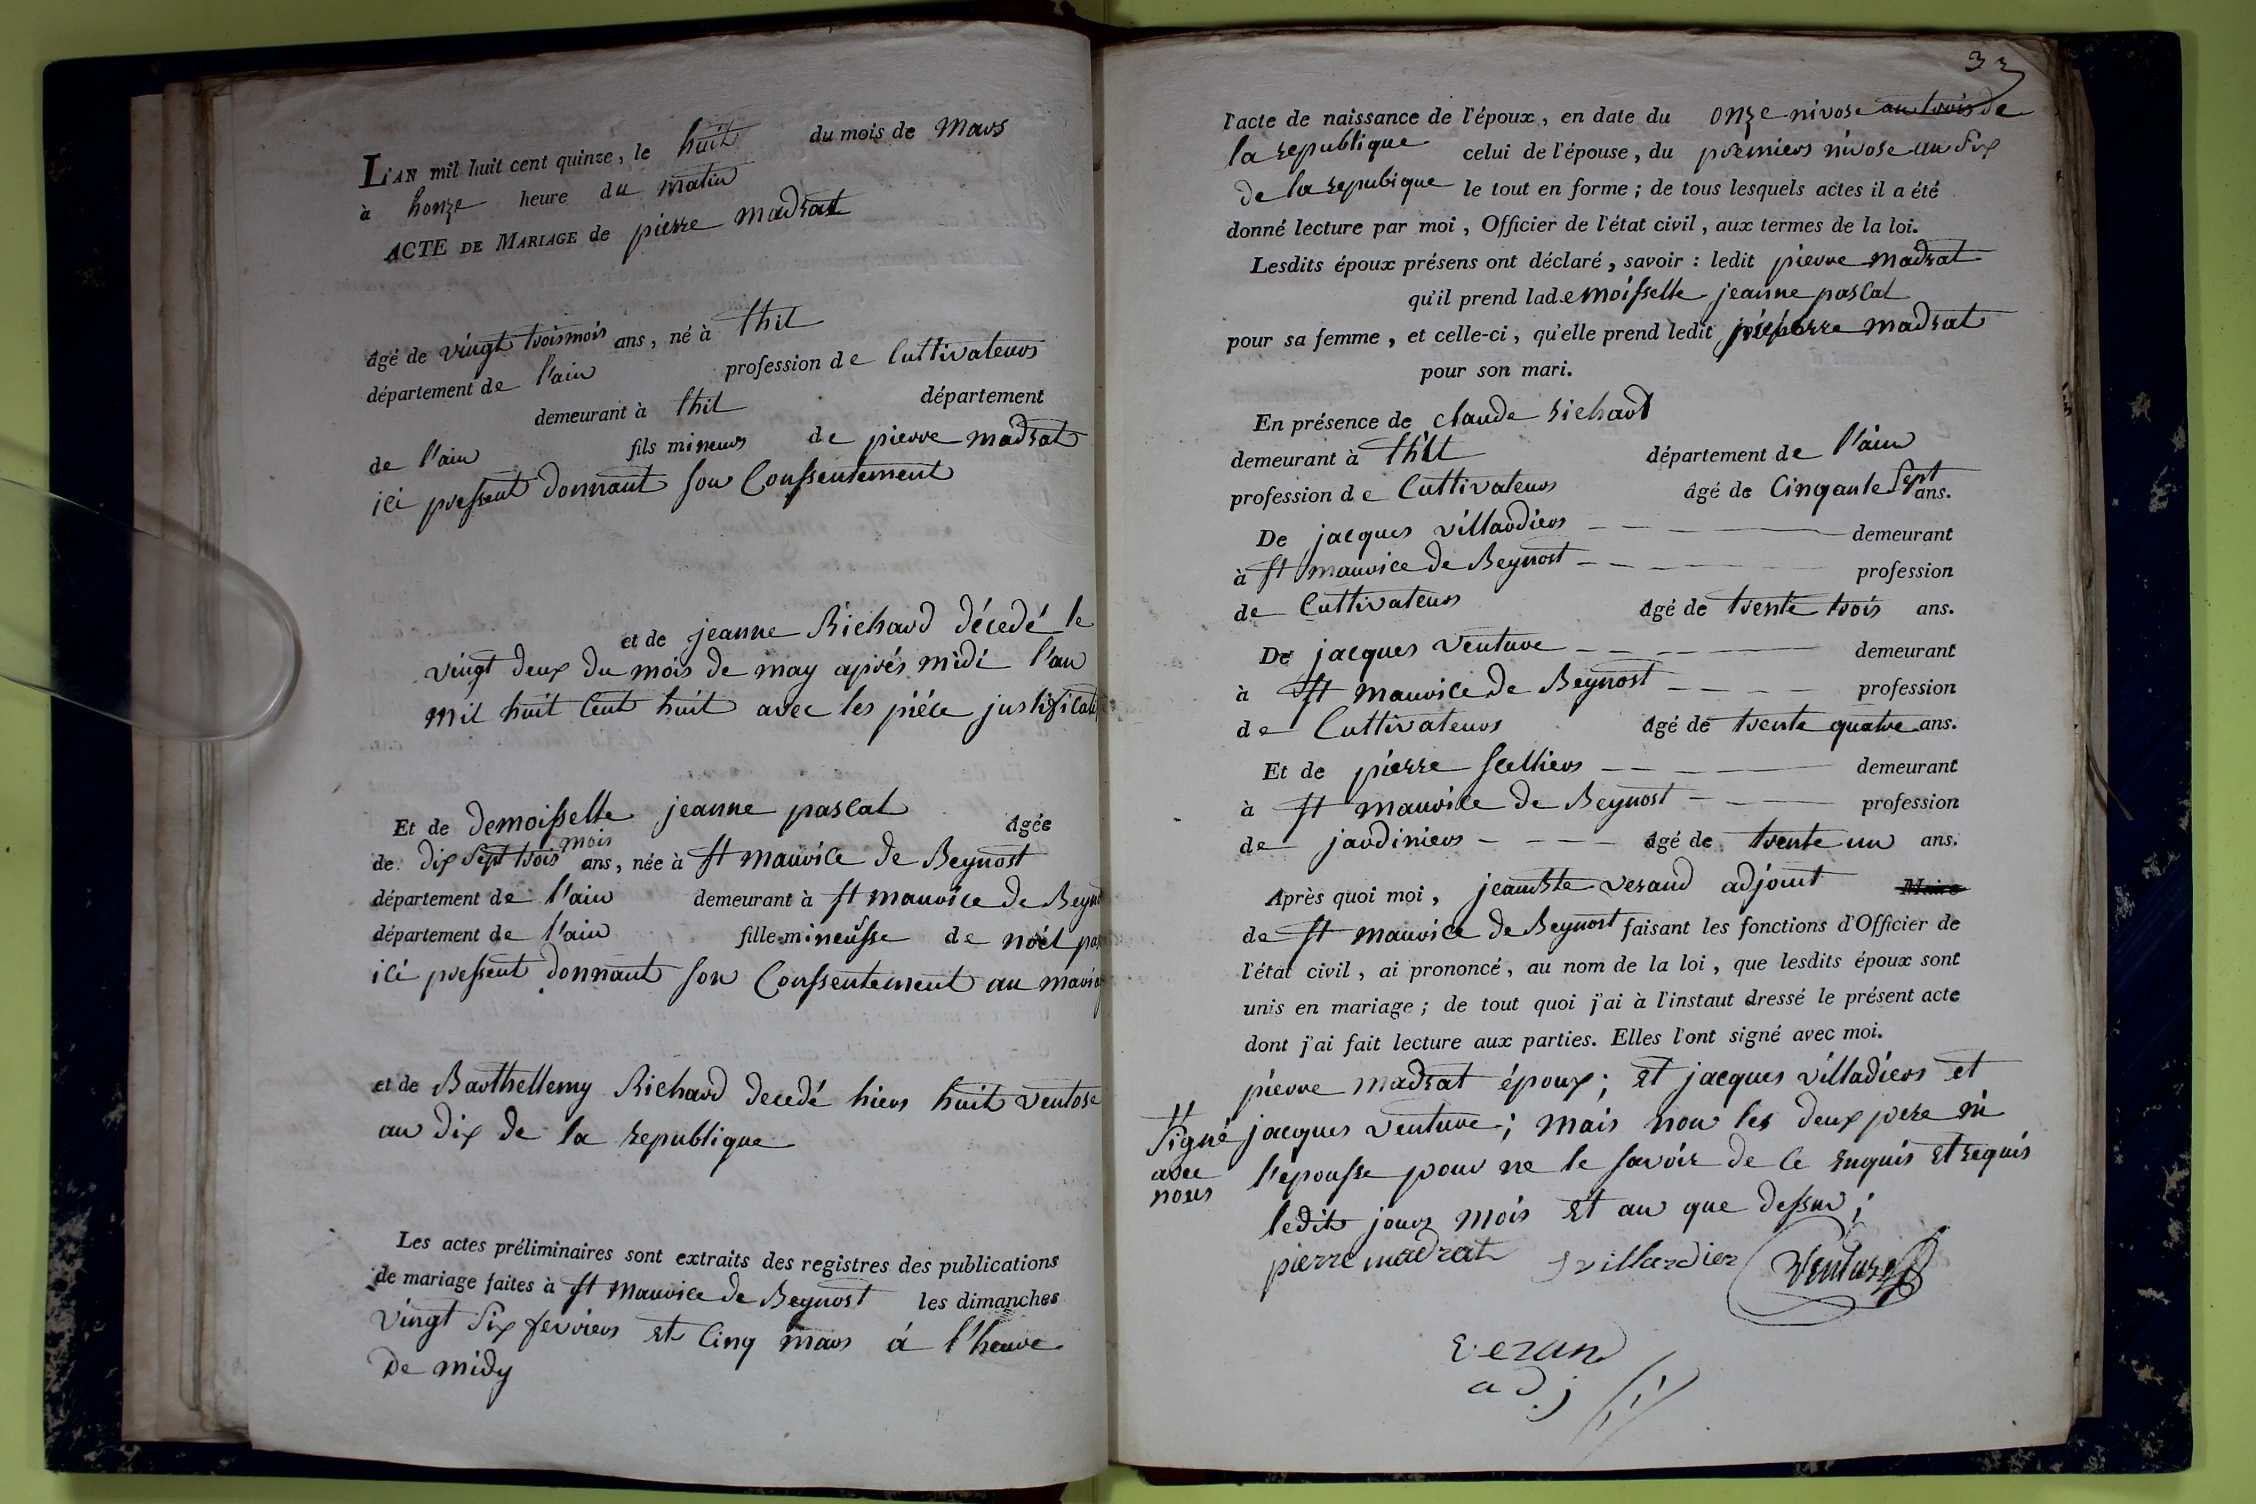 L'AN mil huit cent quinze, le huit du mois de mars
à honze heure du matin
ACTE DE MARIAGE de pierre madrat
âgé de vingt trois mois ans, né à thil
département de l'ain profession de Cultivateur
demeurant à thil département
de l'ain fils mineur de pierre madrat
ici pressent donnant son Conssentement
et de jeanne Richard décedé le
vingt deux du mois de may après midi l'an
mil huit Cent huit avec les piéce justificat
Et de demoisselle jeanne pascal âgée
de dix sept trois mois ans, née à st maurice de Beynost
département de l'ain demeurant à st maurice de Beyn
département de l'ain fille mineusse de noël pas
ici pressent donnant son Conssentement au maria
et de Barthellemy Richard decedé hier huit ventose
an dix de la republique
Les actes préliminaires sont extraits des registres des publications
de mariage faites à st maurice de Beynost les dimanches
vingt six fevrier et Cinq mars á l'heure
de midy
33
l'acte de naissance de l'époux, en date du onze nivose an trois de
la republique celui de l'épouse, du premier nivose an six
de la repubique le tout en forme ; de tous lesquels actes il a été
donné lecture par moi, Officier de l'état civil, aux termes de la loi.
Lesdits époux présens ont déclaré, savoir : ledit pierre madrat
qu'il prend lademoisselle jeanne pascal
pour sa femme, et celle-ci, qu'elle prend ledit pierre madrat
pour son mari.
En présence de claude richard
demeurant à thil département de l'ain
profession de Cultivateur âgé de Cinqante sept ans.
De jacques villardier demeurant
à st maurice de Beynost profession
de Cultivateur âgé de trente trois ans.
De jacques venture demeurant
à st maurice de Beynost profession
de Cultivateur âgé de trente quatre ans.
Et de pierre scellier demeurant
à st maurice de Beynost profession
de jardinier âgé de trente un ans.
Après quoi moi, jeanbte verand adjoint Maire
de st maurice de Beynost faisant les fonctions d'Officier de
l'état civil, ai prononcé, au nom de la loi, que lesdits époux sont
unis en mariage ; de tout quoi j'ai à l'instaut dressé le présent acte
dont j'ai fait lecture aux parties. Elles l'ont signé avec moi.
pierre madrat époux ; et jacques villadier et
jacques venture ; mais non les deux pere ni
signé
avec
nous
l'épousse pour ne le savoir de ce enquis et requis
ledit jour mois et an que dessus ;
pierre madrat villardier Venture
verand
adj